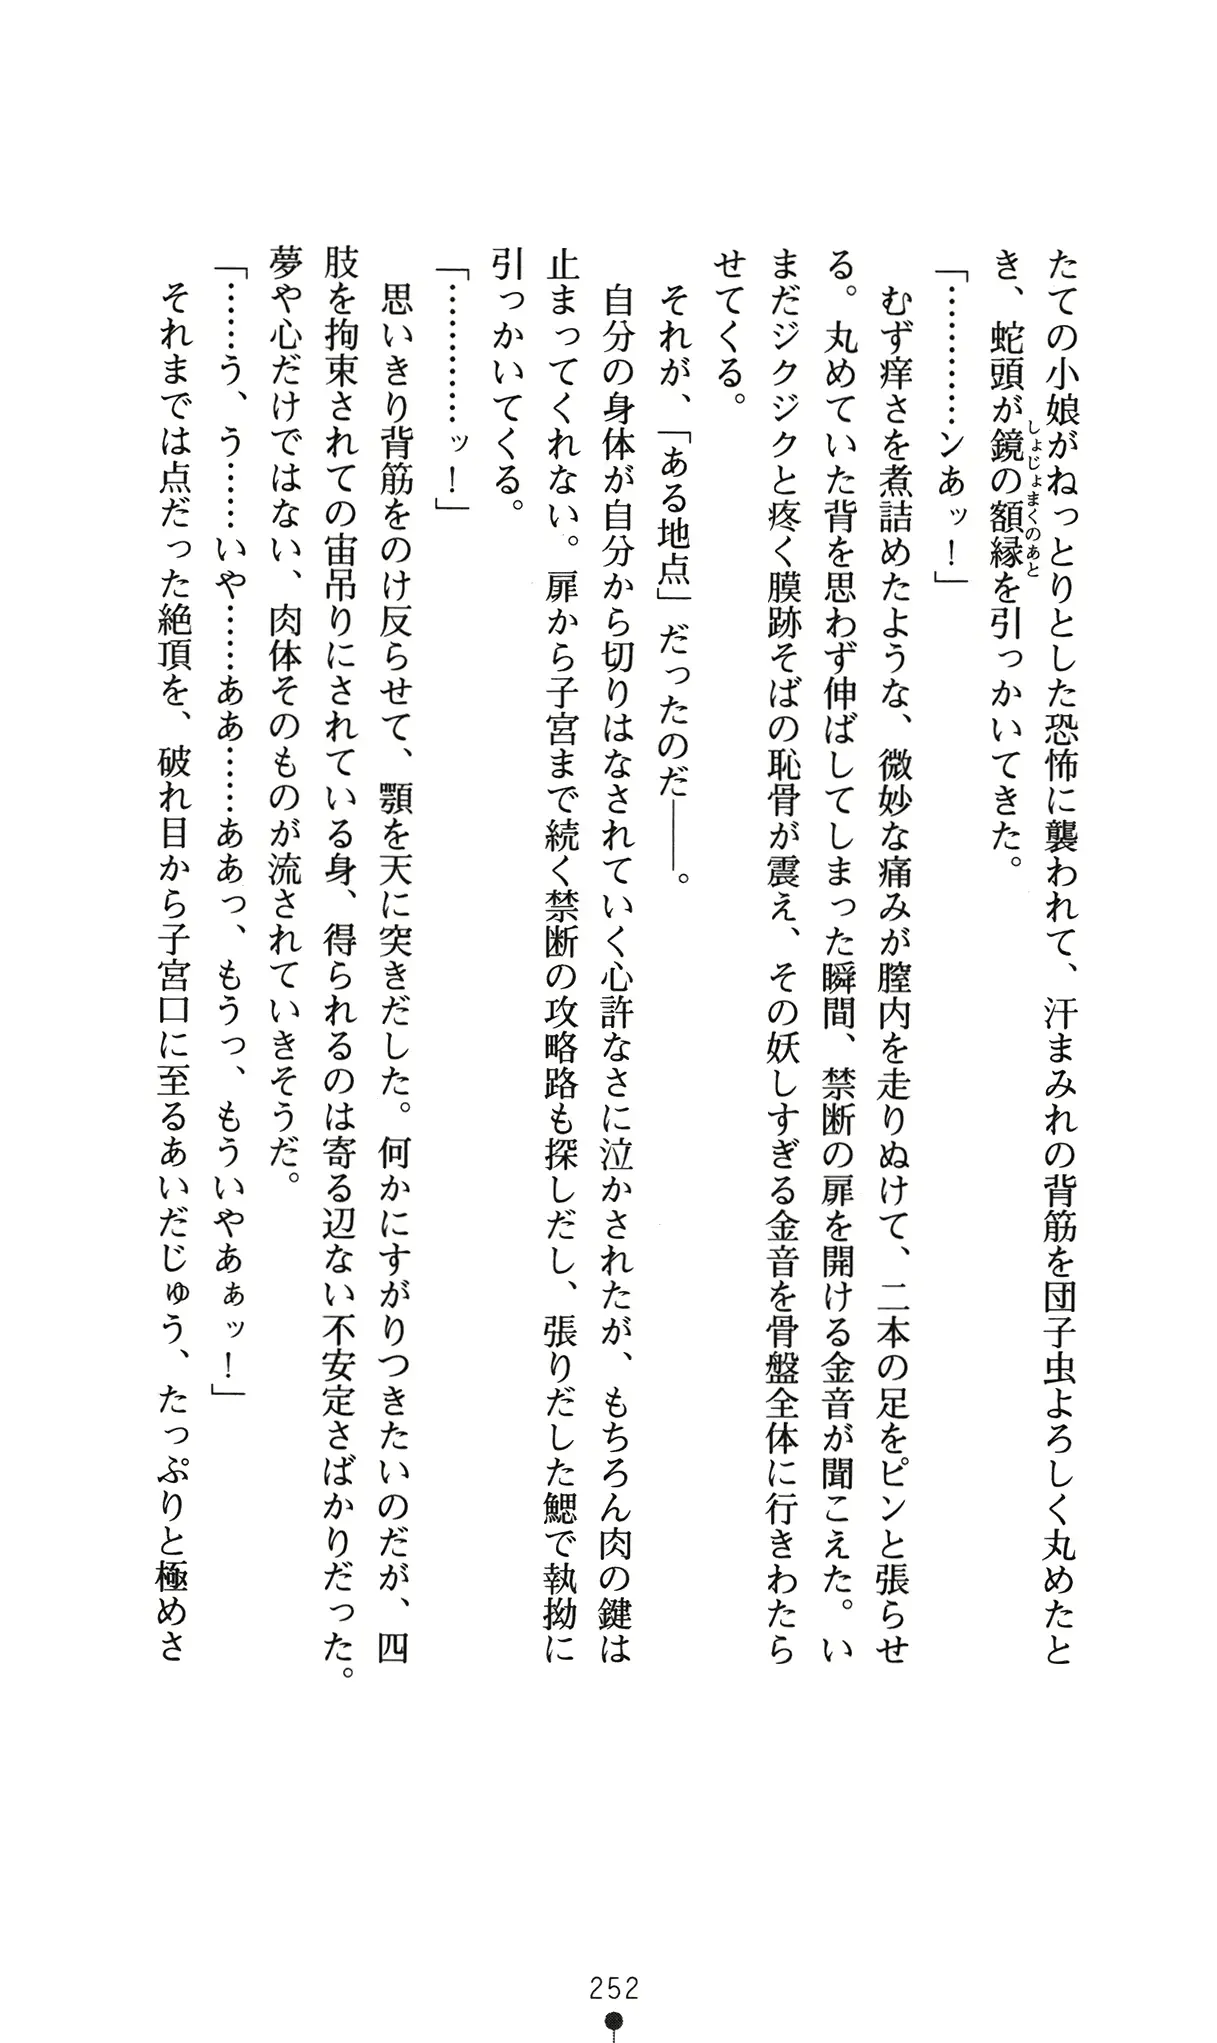 たての小娘がねっとりとした恐怖に襲われて、汗まみれの背筋を団子虫よろしく丸めたと
き、蛇頭が鏡の額縁を引っかいてきた。
しょじょまくのあと
「…………ンあッ！」
むず痒さを煮詰めたような、微妙な痛みが膣内を走りぬけて、二本の足をピンと張らせ
る。丸めていた背を思わず伸ばしてしまった瞬間、禁断の扉を開ける金音が聞こえた。い
まだジクジクと疼く膜跡そばの恥骨が震え、その妖しすぎる金音を骨盤全体に行きわたら
せてくる。
それが、「ある地点」だったのだ――。
自分の身体が自分から切りはなされていく心許なさに泣かされたが、もちろん肉の鍵は
止まってくれない。扉から子宮まで続く禁断の攻略路も探しだし、張りだした鰓で執拗に
引っかいてくる。
「…………ッ！」
思いきり背筋をのけ反らせて、顎を天に突きだした。何かにすがりつきたいのだが、四
肢を拘束されての宙吊りにされている身、得られるのは寄る辺ない不安定さばかりだった。
夢や心だけではない、肉体そのものが流されていきそうだ。
「……う、う……いや……ああ……ああっ、もうっ、もういやあぁッ！」
それまでは点だった絶頂を、破れ目から子宮口に至るあいだじゅう、たっぷりと極めさ
252